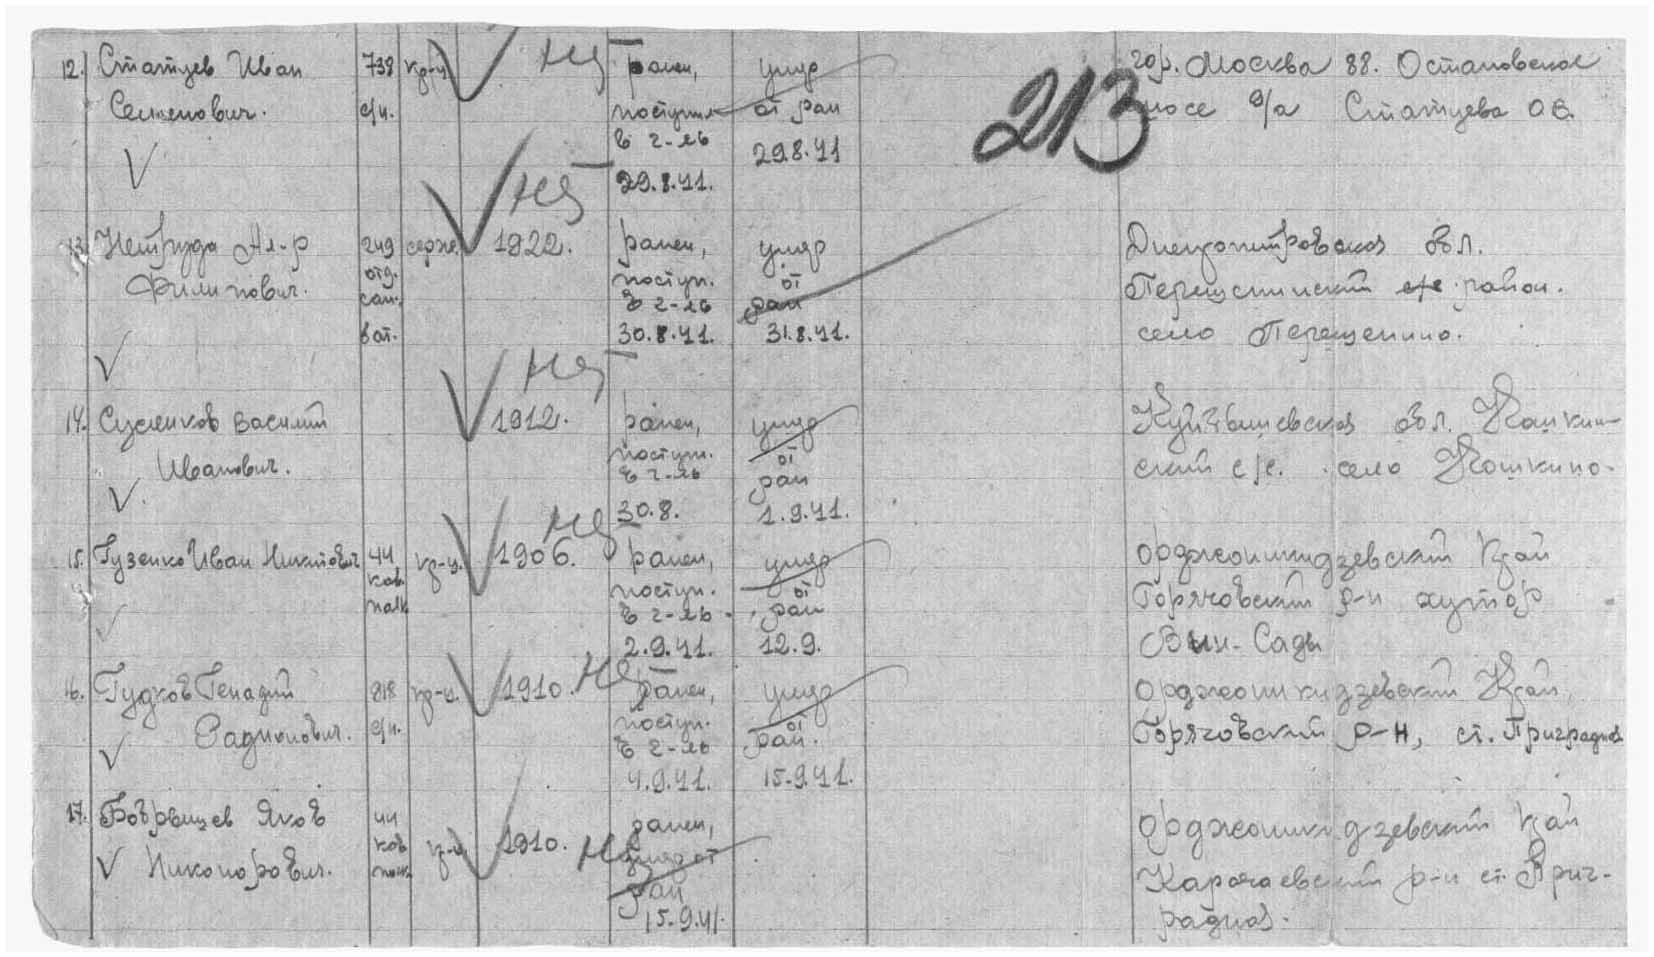 12. Статцев Иван 738 кр-ц НЯ ранен, умер гор. Москва 88. Остановское
Семенович. с/п. поступил от ран шосе д/а Статцева О.В.
в г-ль 29.8.41
29.8.41.
213
13. Нетруда Ал-р 249 серж. НЯ 1922. ранен, умер Днепропетровская обл.
Филипович. отд. поступ. от Перещепинский район.
сан. в г-ль ран село Перещепино.
бат. 30.8.41. 31.8.41.
14. Сусликов Василий НЯ 1912. ранен, умер Куйбышевская обл. Кошкин-
Иванович. поступ. от ский с/с. село Кошкино.
в г-ль ран
30.8. 1.9.41.
15. Гузенко Иван Никитович 44 кр-ц. НЯ 1906. ранен, умер Орджоникидзевский Край
кав. поступ. от Горячовский р-н хутор
полк в г-ль ран Вин-Сады
2.9.41. 12.9.
16. Гудков Генадий 818 кр-ц. 1910. НЯ ранен, умер Орджоникидзевский Край,
Радионович. с/п. поступ. от Горячовский р-н, ст. Приградная
в г-ль ран.
4.9.41. 15.9.41.
17. Бобрышев Яков 44 кр-ц 1910. НЯ ранен, Орджоникидзевский край
Никонорович. кав. умер от Карачаевский р-н ст. Приг-
полк ран радная.
15.9.41.